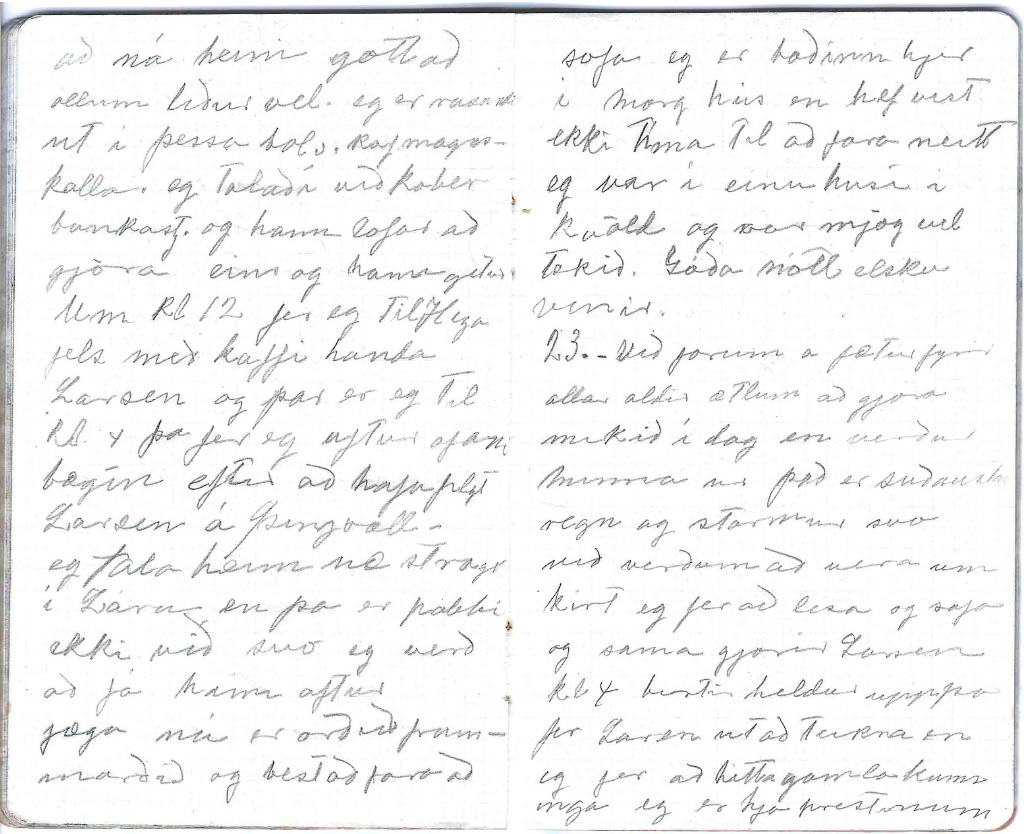 að ná heim gott að
ollum liður vel. eg er
ut i þessa
kalla. eg talaði við
og hann lofar að
gjöra eins og hann getur
Um Kl 12 fer eg til
fels með kaffi handa
Larsen og þar er eg til
Kl. 4 þa fer eg aftur ofan i
bæginn eftir að hafa filgt
Larsen á Þingvöll -
eg tala heim næ strags
i Láru en þa er pabbi
ekki við svo eg verð
að fá hann aftur
jæga nú er orðið fram-
morðið og best að fara að
sofa eg er boðinn hjer
i morg hús en hef vist
ekki tima til að fara neitt
eg var i einu húsi i
kvöld og var mjög vel
tekið. Góða nótt elsku
vinir.
23. - Við forum a fætur fyrir
allar aldir ætlum að gjöra
mikið i dag en verður
minna ur það er suðaustan
regn og stormur svo
við verðum að vera um
kirt eg fer að lesa og sofa
og sama gjörir Larsen
kl 4 birtir heldur upp þa
fer Larsen ut að teikna en
eg fer að hitta gamla kunn
inga eg er hja prestinum